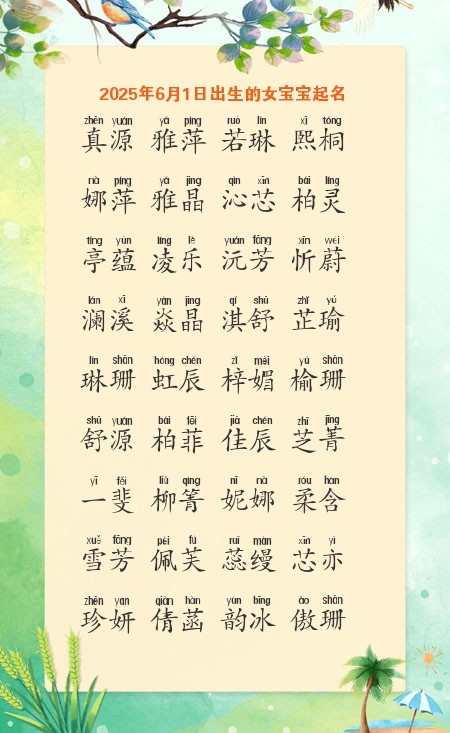 2025年6月1日出生的女宝宝起名
zhēn yuán yǎ píng ruò lín xī tóng
真源 雅萍 若琳 熙桐
nà píng yǎ jīng qìn xīn bǎi líng
娜萍 雅晶 沁芯 柏灵
tíng yùn líng lè yuán fāng xīn wèi
亭蕴 凌乐 沅芳 忻蔚
lán xī yàn jīng qí shū zhǐ yú
澜溪 焱晶 淇舒 芷瑜
lín shān hóng chén zǐ mèi yú shān
琳珊 虹辰 梓媚 榆珊
shū yuán bǎi fēi jiā chén zhī jīng
舒源 柏菲 佳辰 芝菁
yī fěi liǔ qìng nī nà róu hán
一斐 柳箐 妮娜 柔含
xuě fāng pèi fú ruǐ màn xīn yì
雪芳 佩芙 蕊缦 芯亦
zhēn yán qiàn hàn yùn bīng ào shān
珍妍 倩菡 韵冰 傲珊